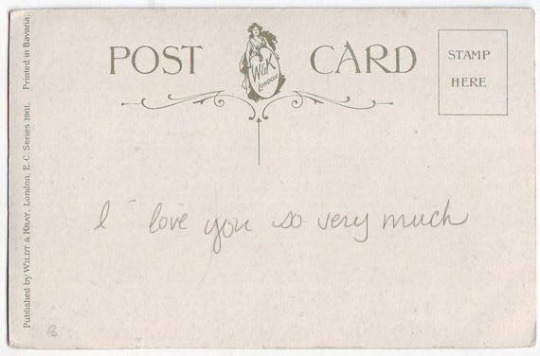 POST CARD
W & K
LONDON
STAMP
HERE
I love you so very much
Published by WILDT & KRAY, London, E.C. Series 1961. Printed in Bavaria.